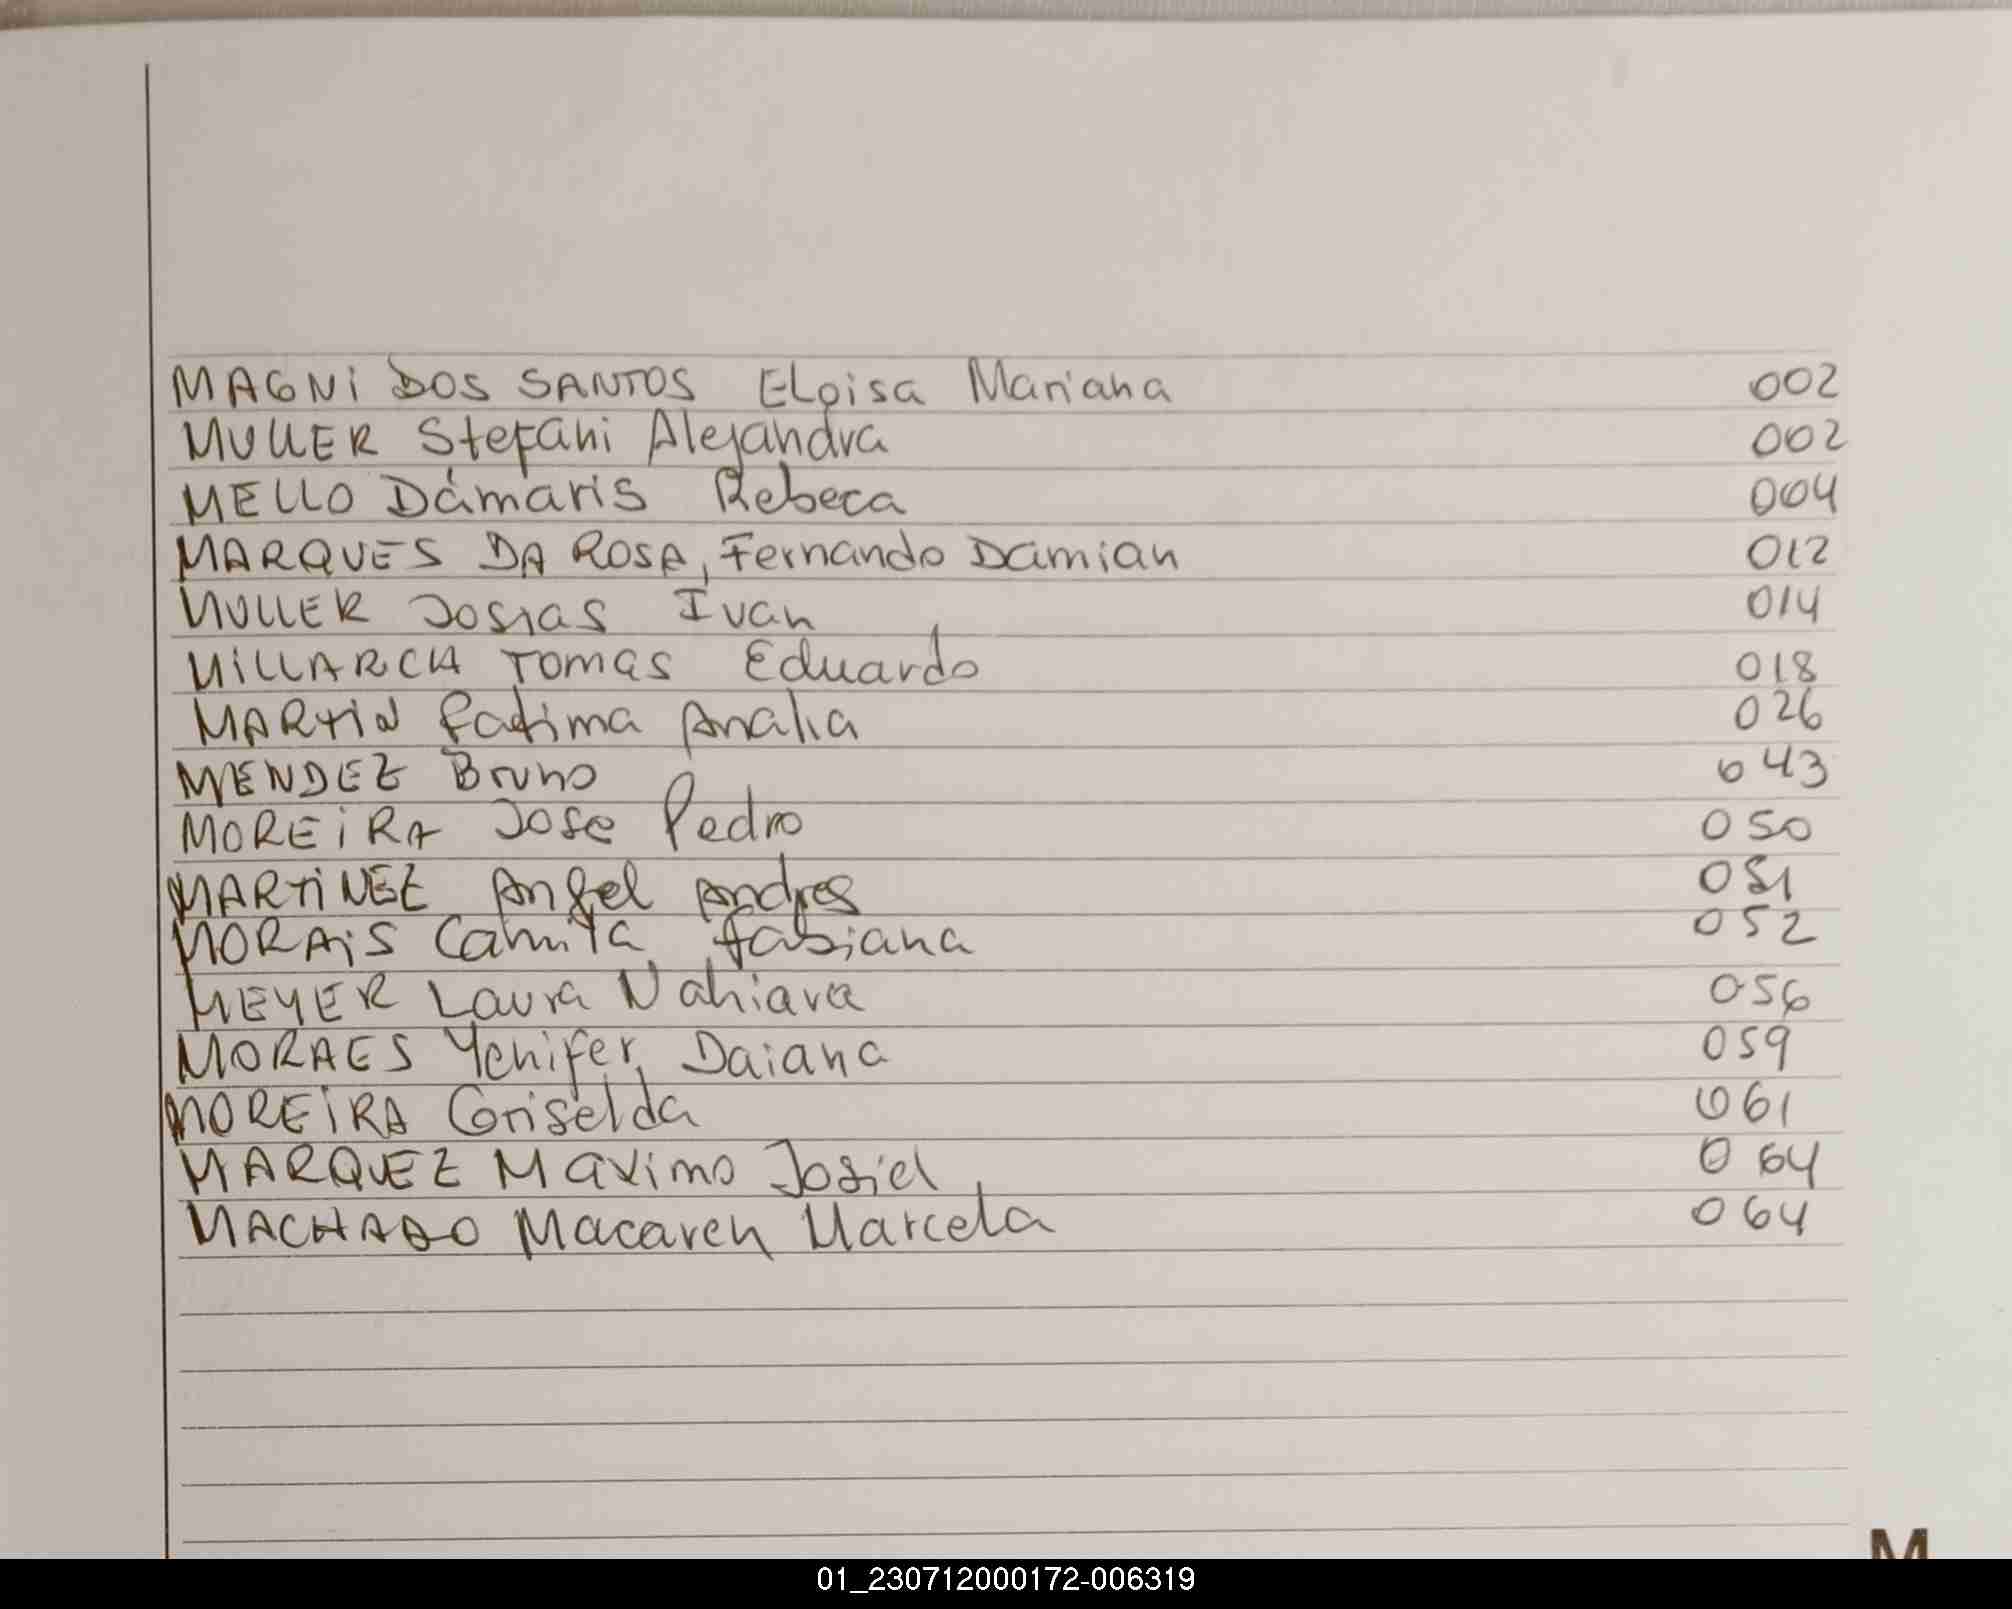 MAGNI DOS SANTOS Eloisa Mariana 002
MULLER Stefani Alejandra 002
MELLO Dámaris Rebeca 004
MARQUES DA ROSA, Fernando Damian 012
MULLER Josias Ivan 014
MILLARCH Tomas Eduardo 018
MARTIN Fatima Analia 026
MENDEZ Bruno 043
MOREIRA Jose Pedro 050
MARTINEZ Angel Andres 051
MORAIS Camila Fabiana 052
MEYER Laura Nahiara 056
MORAES Yenifer Daiana 059
MOREIRA Griselda 061
MARQUEZ Maximo Josiel 064
MACHADO Macaren Marcela 064
M
01_230712000172-006319